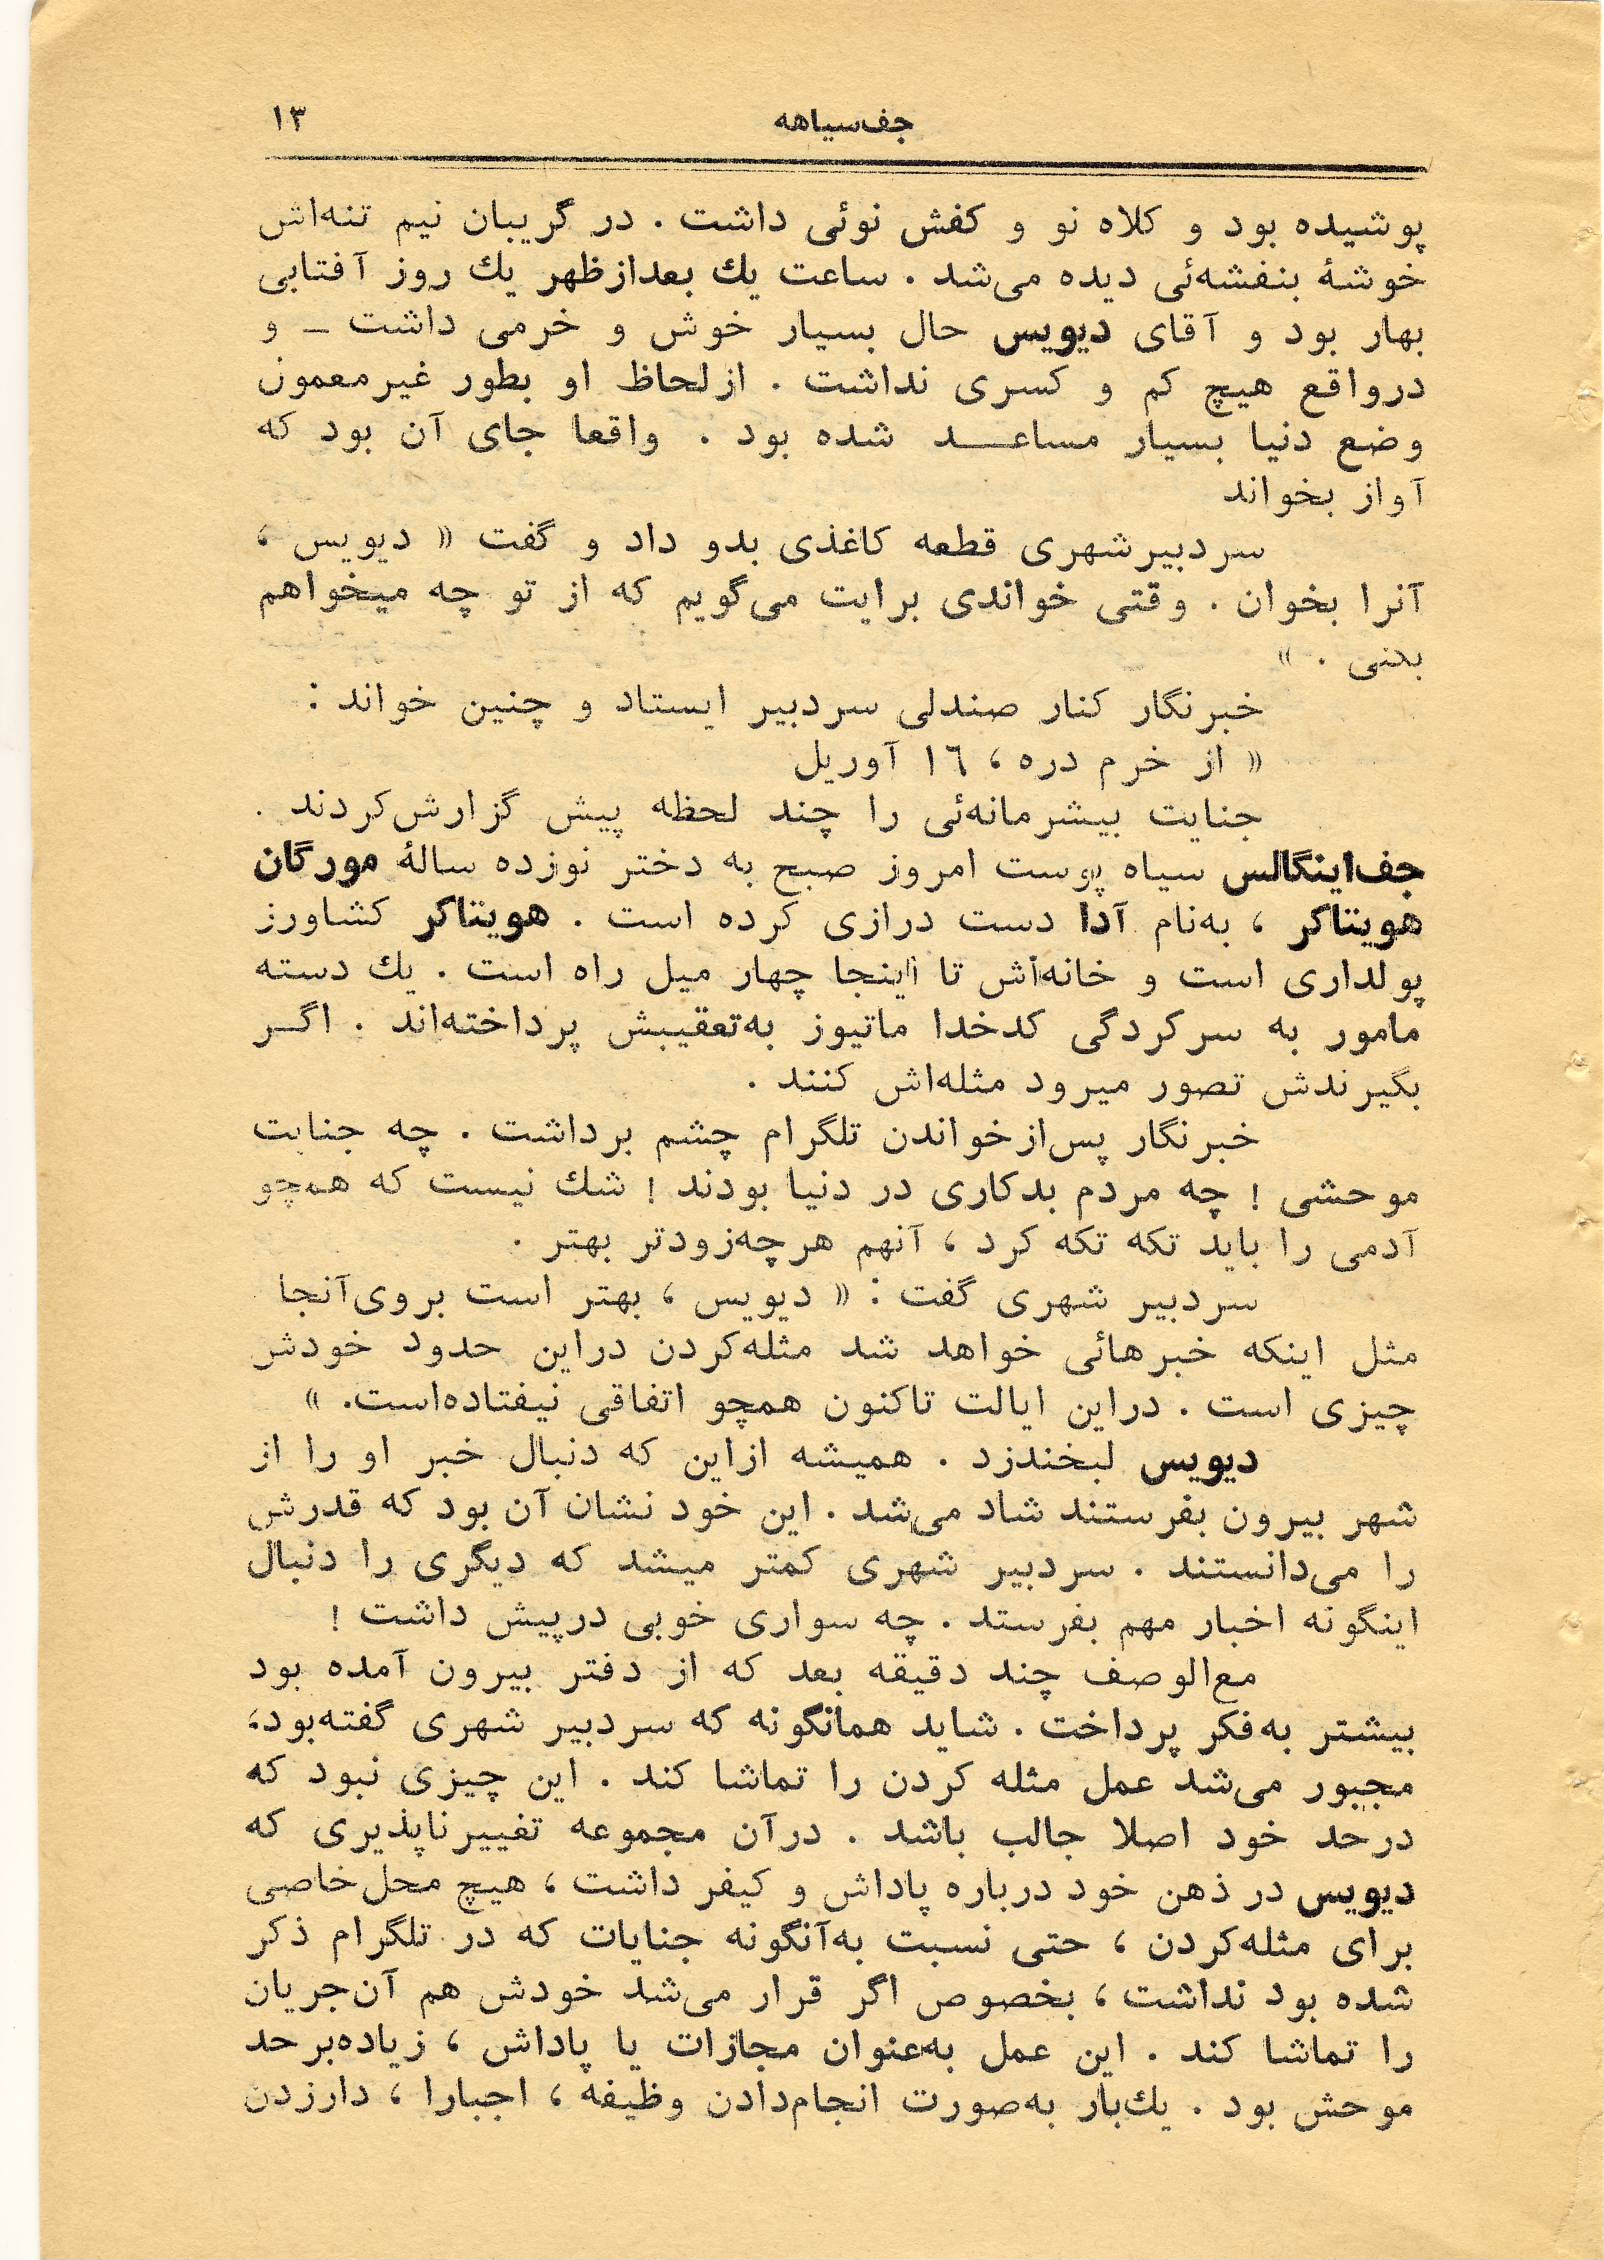 جف‌سیاهه ۱۳
پوشیده بود و کلاه نو و کفش نوئی داشت . در گریبان نیم تنه‌اش
خوشهٔ بنفشه‌ئی دیده می‌شد . ساعت یك بعدازظهر یك روز آفتابی
بهار بود و آقای دیویس حال بسیار خوش و خرمی داشت ـ و
درواقع هیچ کم و کسری نداشت . ازلحاظ او بطور غیرمعمول
وضع دنیا بسیار مساعـــد شده بود . واقعا جای آن بود که
آواز بخواند
سردبیرشهری قطعه کاغذی بدو داد و گفت « دیویس ،
آنرا بخوان . وقتی خواندی برایت می‌گویم که از تو چه میخواهم
بکنی . »
خبرنگار کنار صندلی سردبیر ایستاد و چنین خواند :
« از خرم دره ، ۱٦ آوریل
جنایت بیشرمانه‌ئی را چند لحظه پیش گزارش‌کردند .
جف‌اینگالس سیاه پوست امروز صبح به دختر نوزده سالهٔ مورگان
هویتاکر ، به‌نام آدا دست درازی کرده است . هویتاکر کشاورز
پولداری است و خانه‌اش تا اینجا چهار میل راه است . یك دسته
مامور به سرکردگی کدخدا ماتیوز به‌تعقیبش پرداخته‌اند . اگــر
بگیرندش تصور میرود مثله‌اش کنند .
خبرنگار پس‌ازخواندن تلگرام چشم برداشت . چه جنایت
موحشی ! چه مردم بدکاری در دنیا بودند ! شك نیست که همچو
آدمی را باید تکه تکه کرد ، آنهم هرچه‌زودتر بهتر .
سردبیر شهری گفت : « دیویس ، بهتر است بروی‌آنجا
مثل اینکه خبرهائی خواهد شد مثله‌کردن دراین حدود خودش
چیزی است . دراین ایالت تاکنون همچو اتفاقی نیفتاده‌است. »
دیویس لبخندزد . همیشه ازاین که دنبال خبر او را از
شهر بیرون بفرستند شاد می‌شد . این خود نشان آن بود که قدرش
را می‌دانستند . سردبیر شهری کمتر میشد که دیگری را دنبال
اینگونه اخبار مهم بفرستد . چه سواری خوبی درپیش داشت !
مع‌الوصف چند دقیقه بعد که از دفتر بیرون آمده بود
بیشتر به‌فکر پرداخت . شاید همانگونه که سردبیر شهری گفته‌بود،
مجبور می‌شد عمل مثله کردن را تماشا کند . این چیزی نبود که
درحد خود اصلا جالب باشد . درآن مجموعه تغییرناپذیری که
دیویس در ذهن خود درباره پاداش و کیفر داشت ، هیچ محل‌خاصی
برای مثله‌کردن ، حتی نسبت به‌آنگونه جنایات که در تلگرام ذکر
شده بود نداشت ، بخصوص اگر قرار می‌شد خودش هم آن‌جریان
را تماشا کند . این عمل به‌عنوان مجازات یا پاداش ، زیاده‌برحد
موحش بود . یك‌بار به‌صورت انجام‌دادن وظیفه ، اجبارا ، دارزدن